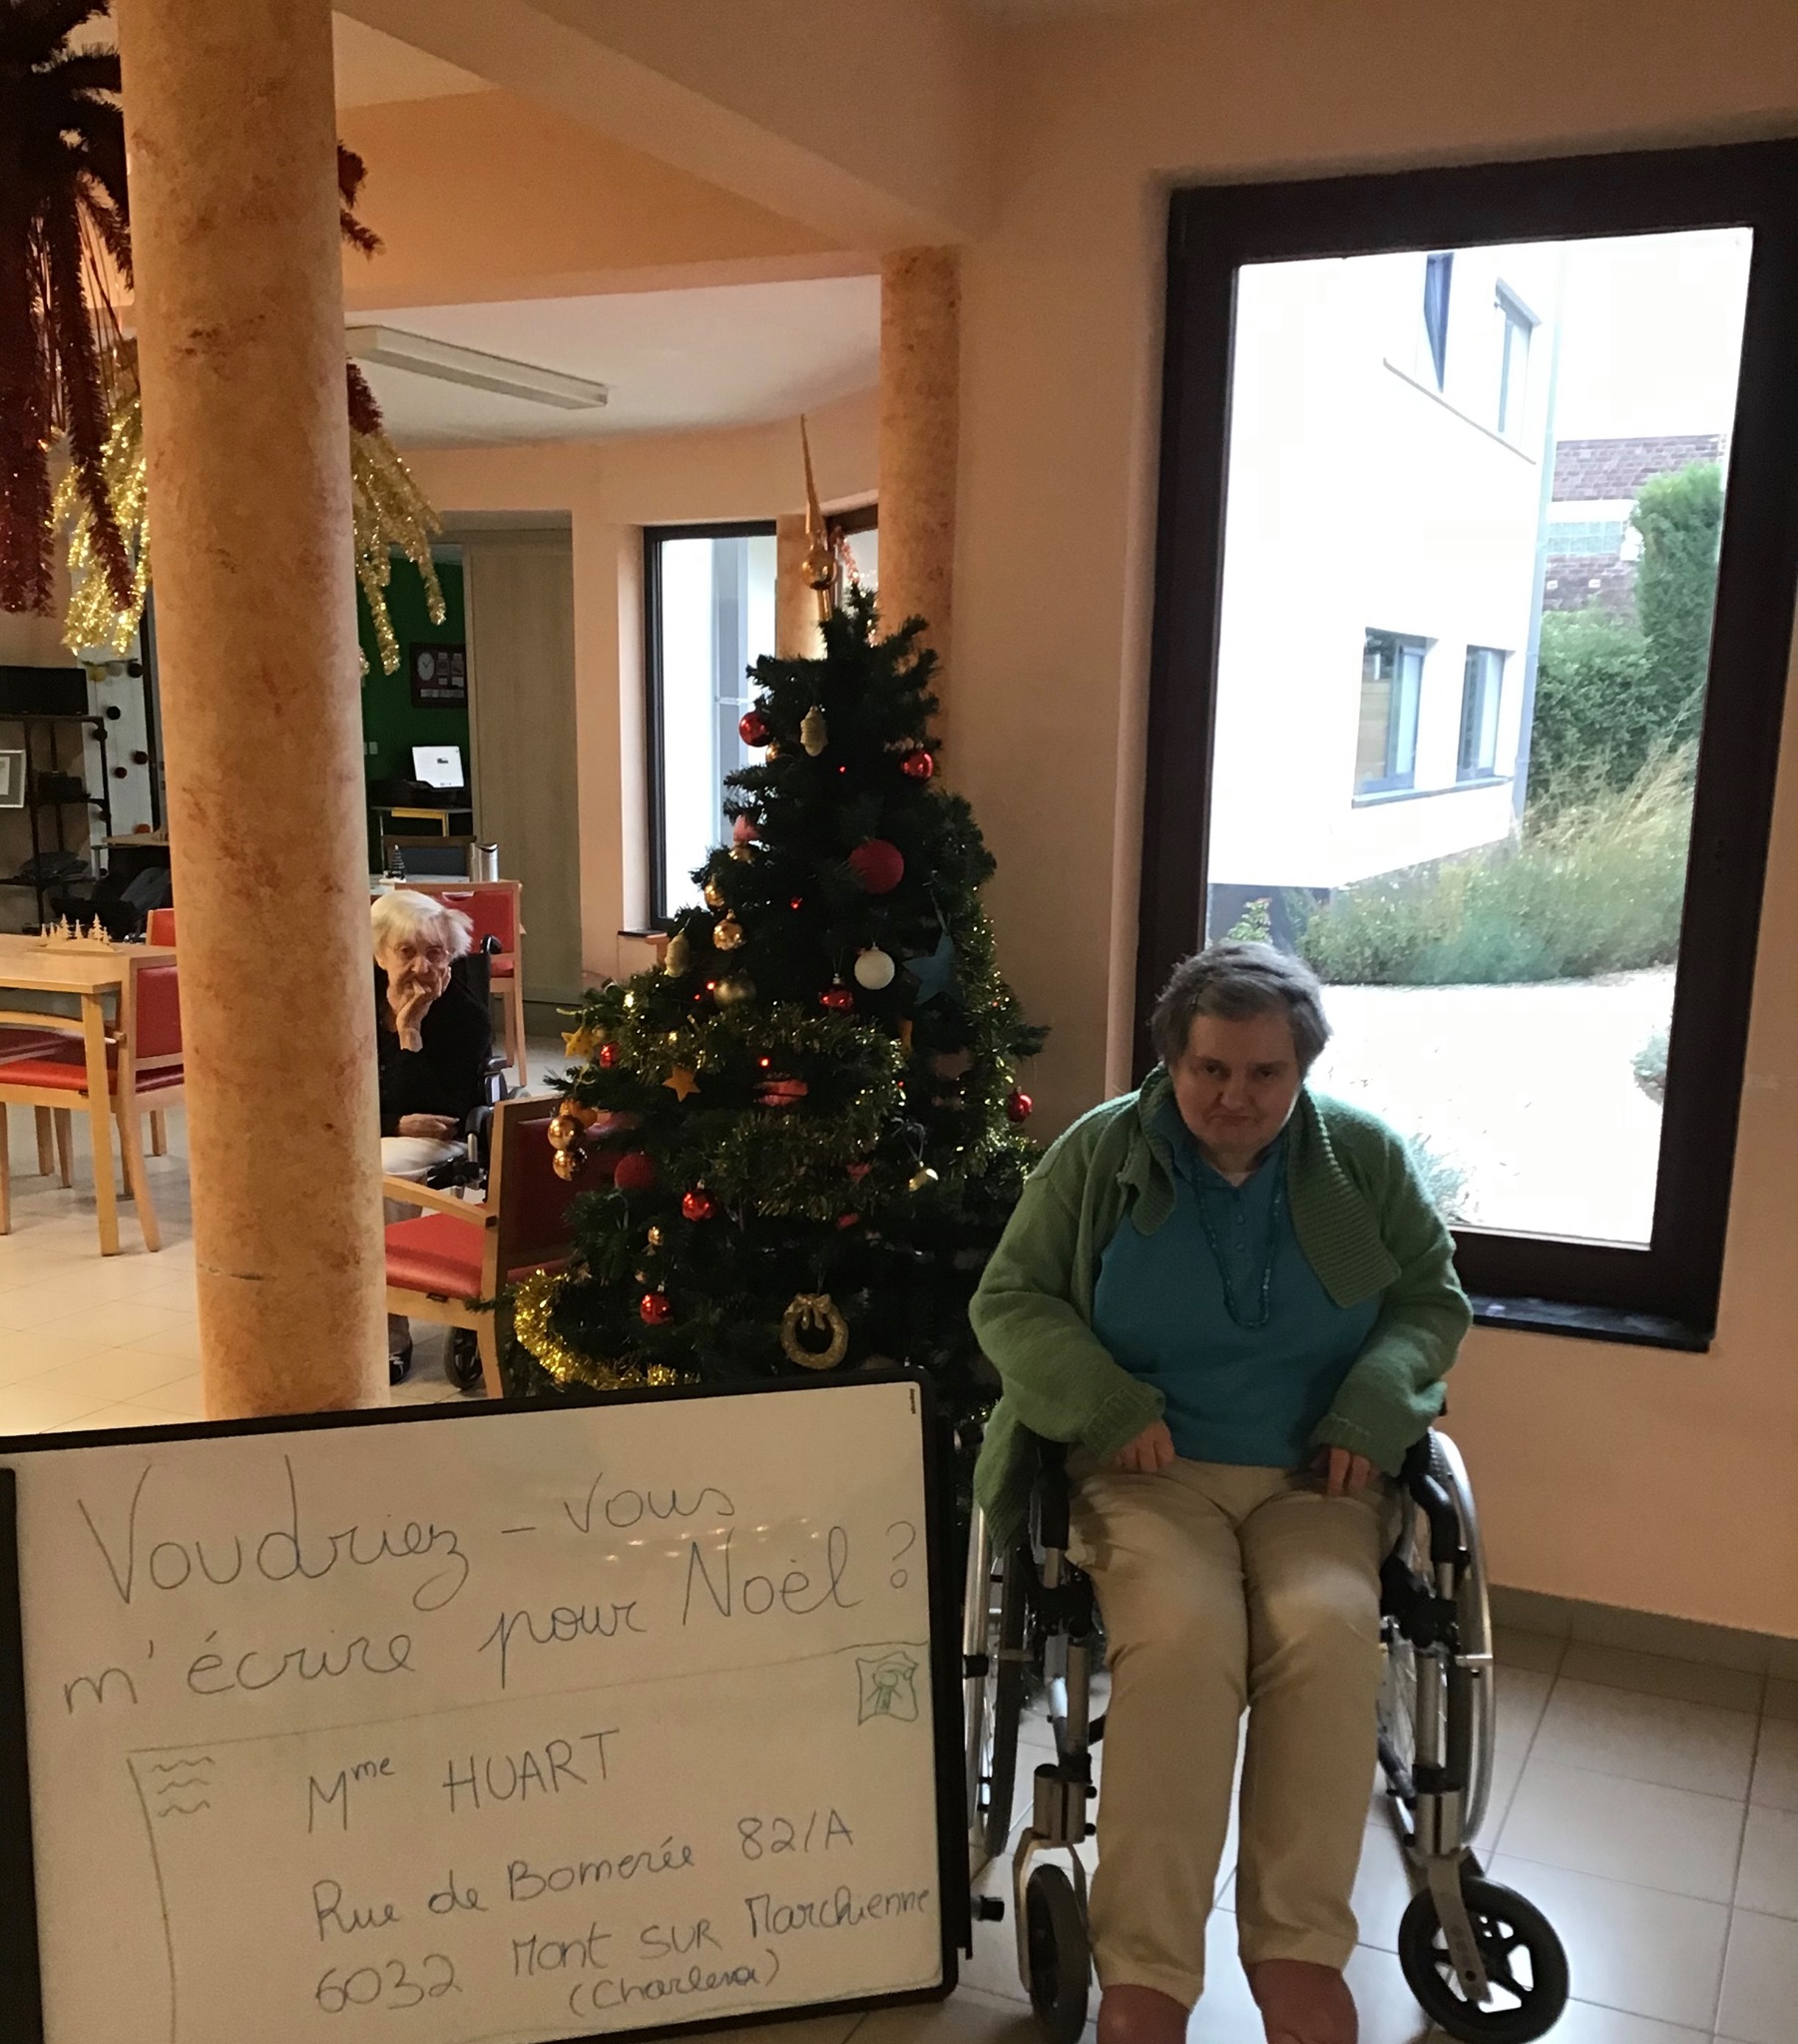 Voudriez-vous
m'écrire pour Noël ?
Mme HUART
Rue de Bomerée 82/A
6032 Mont SUR Marchienne
(Charleroi)